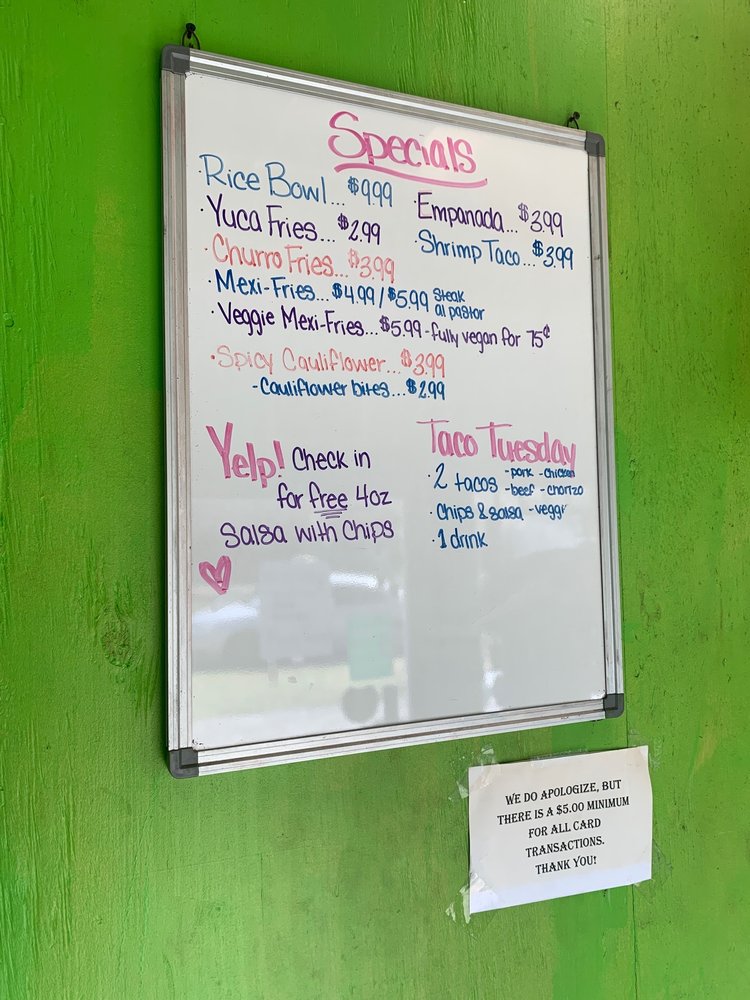 Specials
·Rice Bowl...$9.99
·Yuca Fries...$2.99
·Churro Fries...$3.99
·Empanada...$3.99
·Shrimp Taco...$3.99
·Mexi-Fries...$4.99/$5.99 Steak
al pastor
·Veggie Mexi-Fries...$5.99-fully vegan for 75¢
·Spicy Cauliflower...$3.99
-Cauliflower bites...$2.99
Yelp! Check in
for free 4oz
Salsa with Chips
Taco Tuesday
·2 tacos -pork -chicken
-beef -chorizo
·Chips & salsa -veggi
·1 drink
WE DO APOLOGIZE, BUT
THERE IS A $5.00 MINIMUM
FOR ALL CARD
TRANSACTIONS.
THANK YOU!